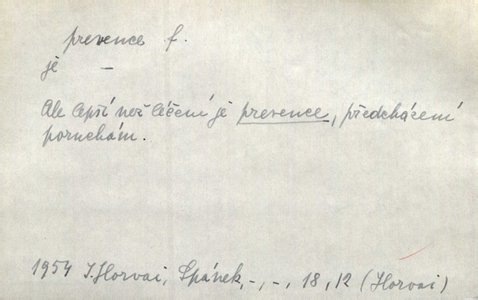 prevence f.
je –
Ale lepší než léčení je prevence, předcházení
poruchám.
1954 I. Horvai, Spánek, -, -, 18, 12 (Horvai)